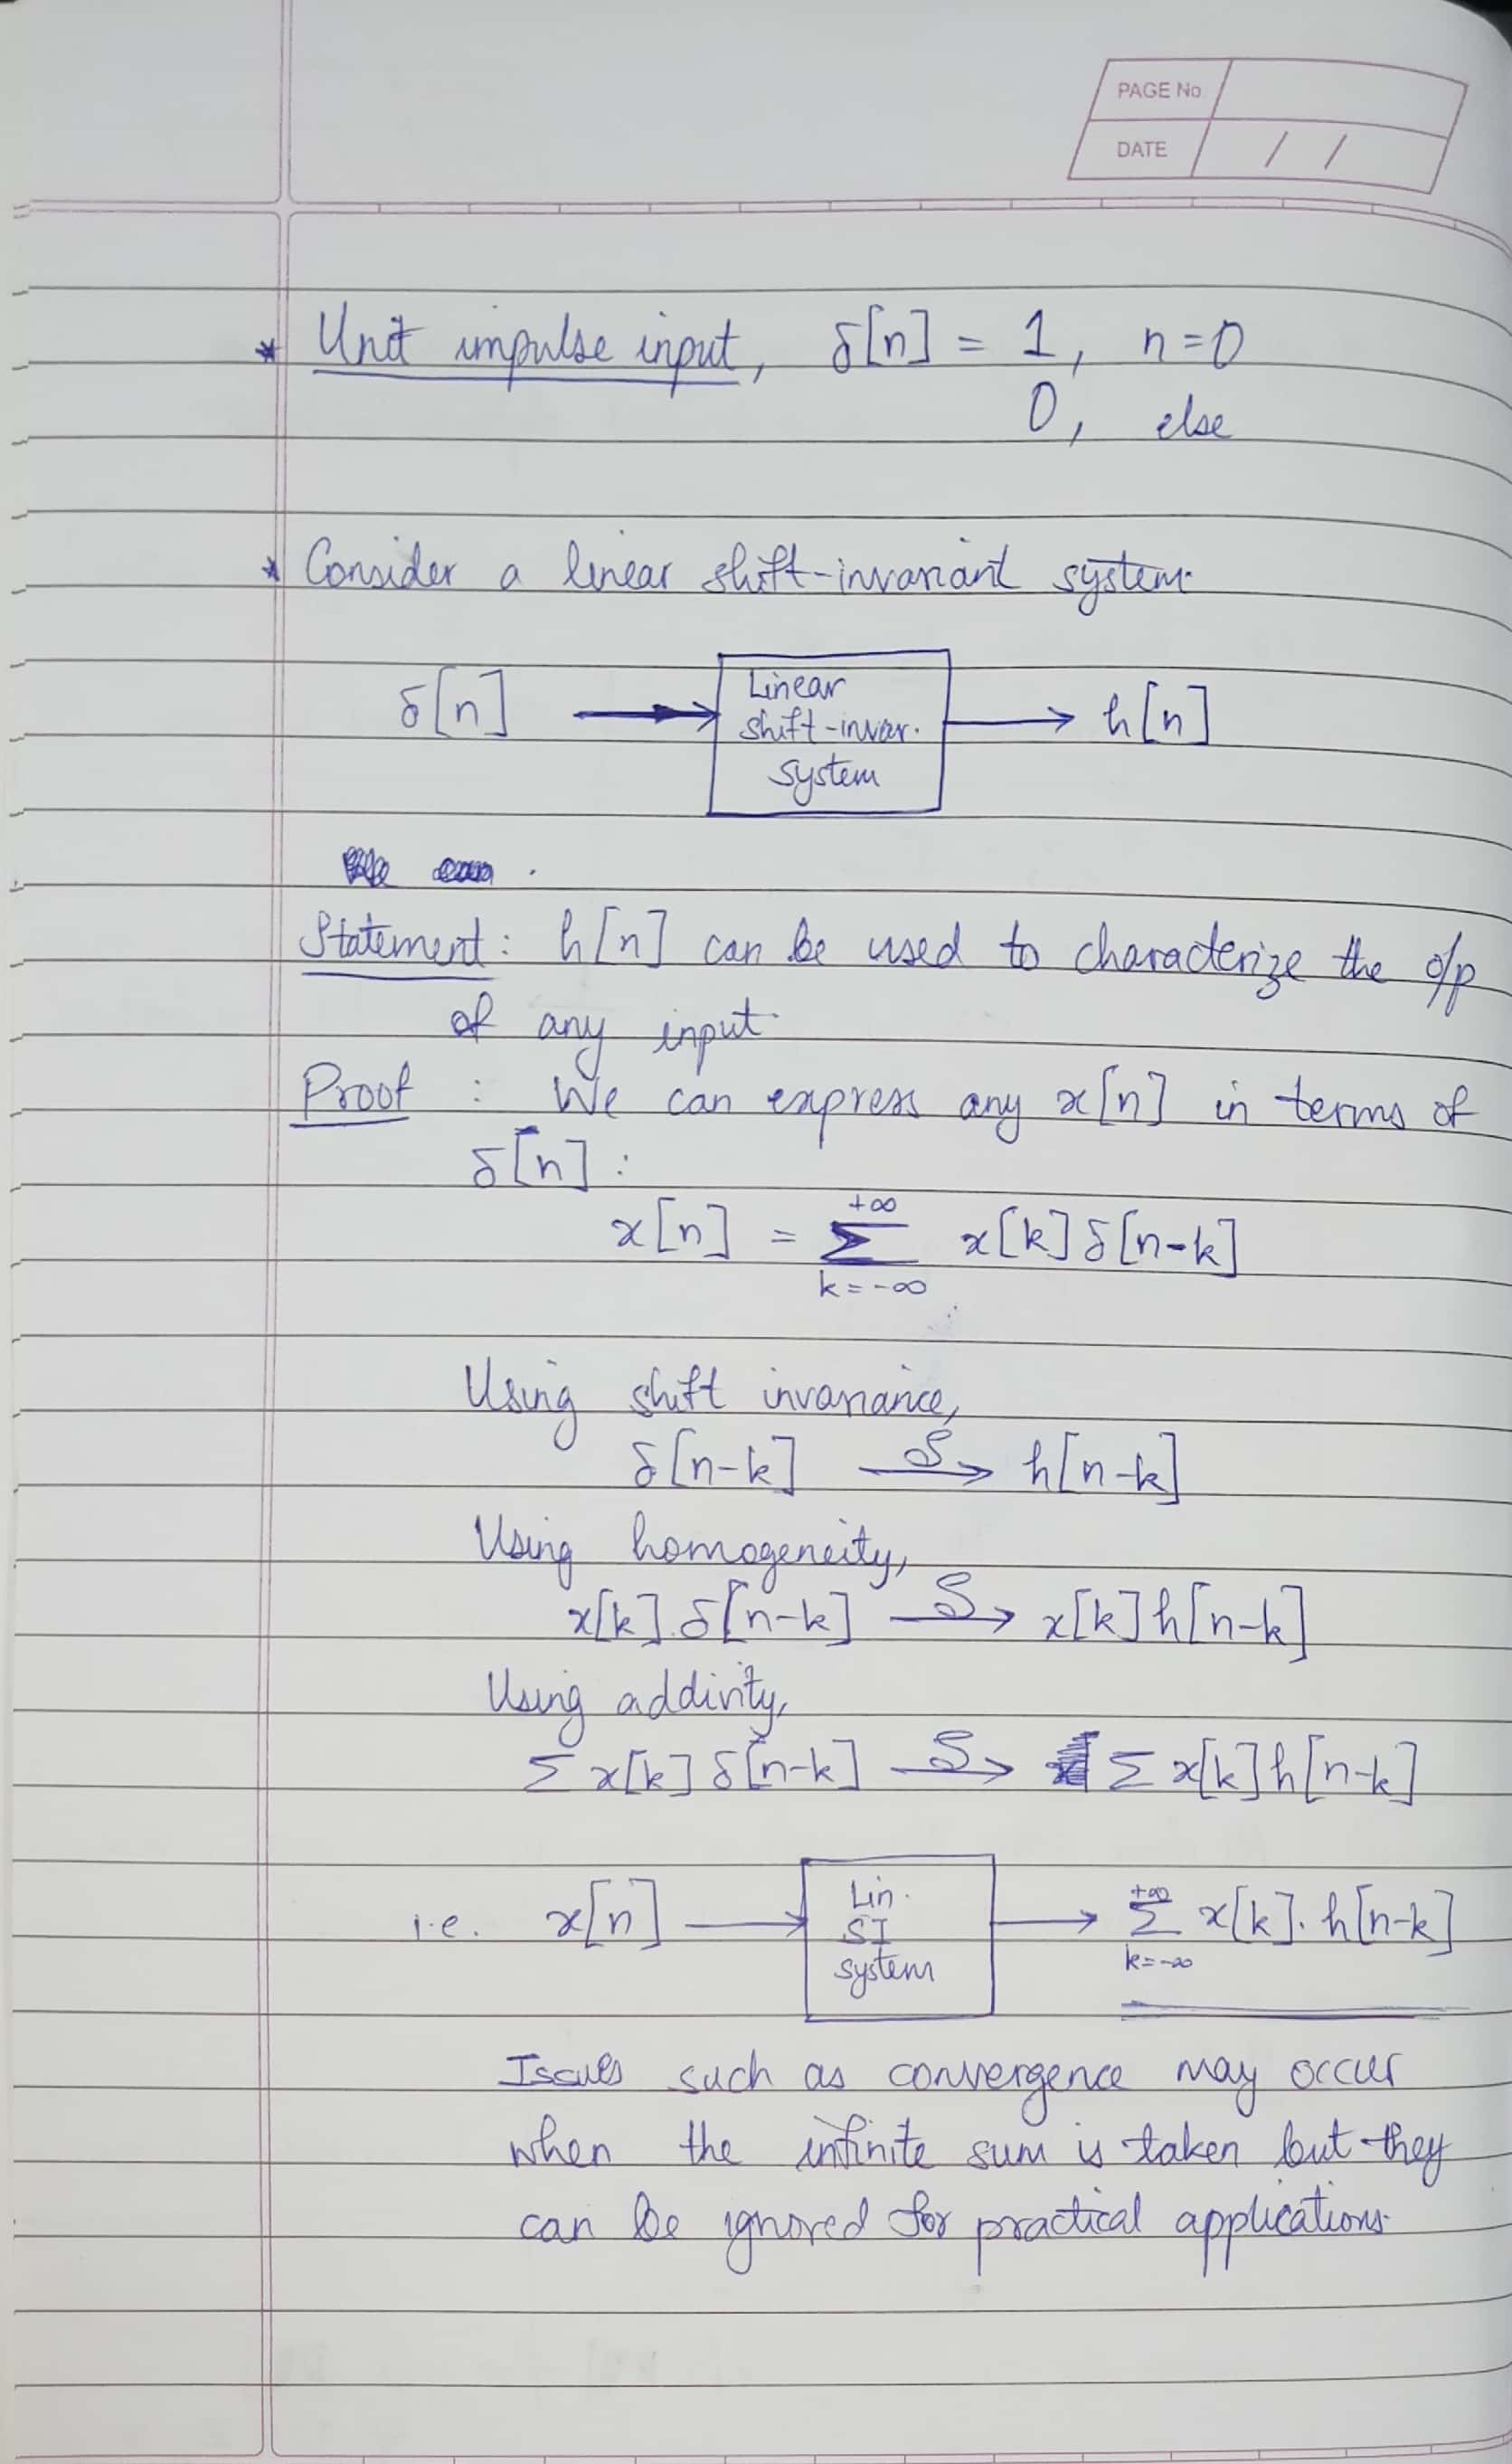 PAGE No
DATE / /
* Unit impulse input, δ[n] = 1, n=0
0, else
* Consider a linear shift-invariant system.
δ[n] → Linear shift-invar. system → h[n]
Statement: h[n] can be used to characterize the o/p
of any input.
Proof : We can express any x[n] in terms of
δ[n] :
x[n] = +∞ Σ k=-∞ x[k] δ[n-k]
Using shift invariance,
δ[n-k] S→ h[n-k]
Using homogeneity,
x[k] δ[n-k] S→ x[k] h[n-k]
Using addivity,
Σ x[k] δ[n-k] S→ Σ x[k] h[n-k]
i.e. x[n] → Lin. SI system → +∞ Σ k=-∞ x[k]. h[n-k]
Issues such as convergence may occur
when the infinite sum is taken but they
can be ignored for practical applications.